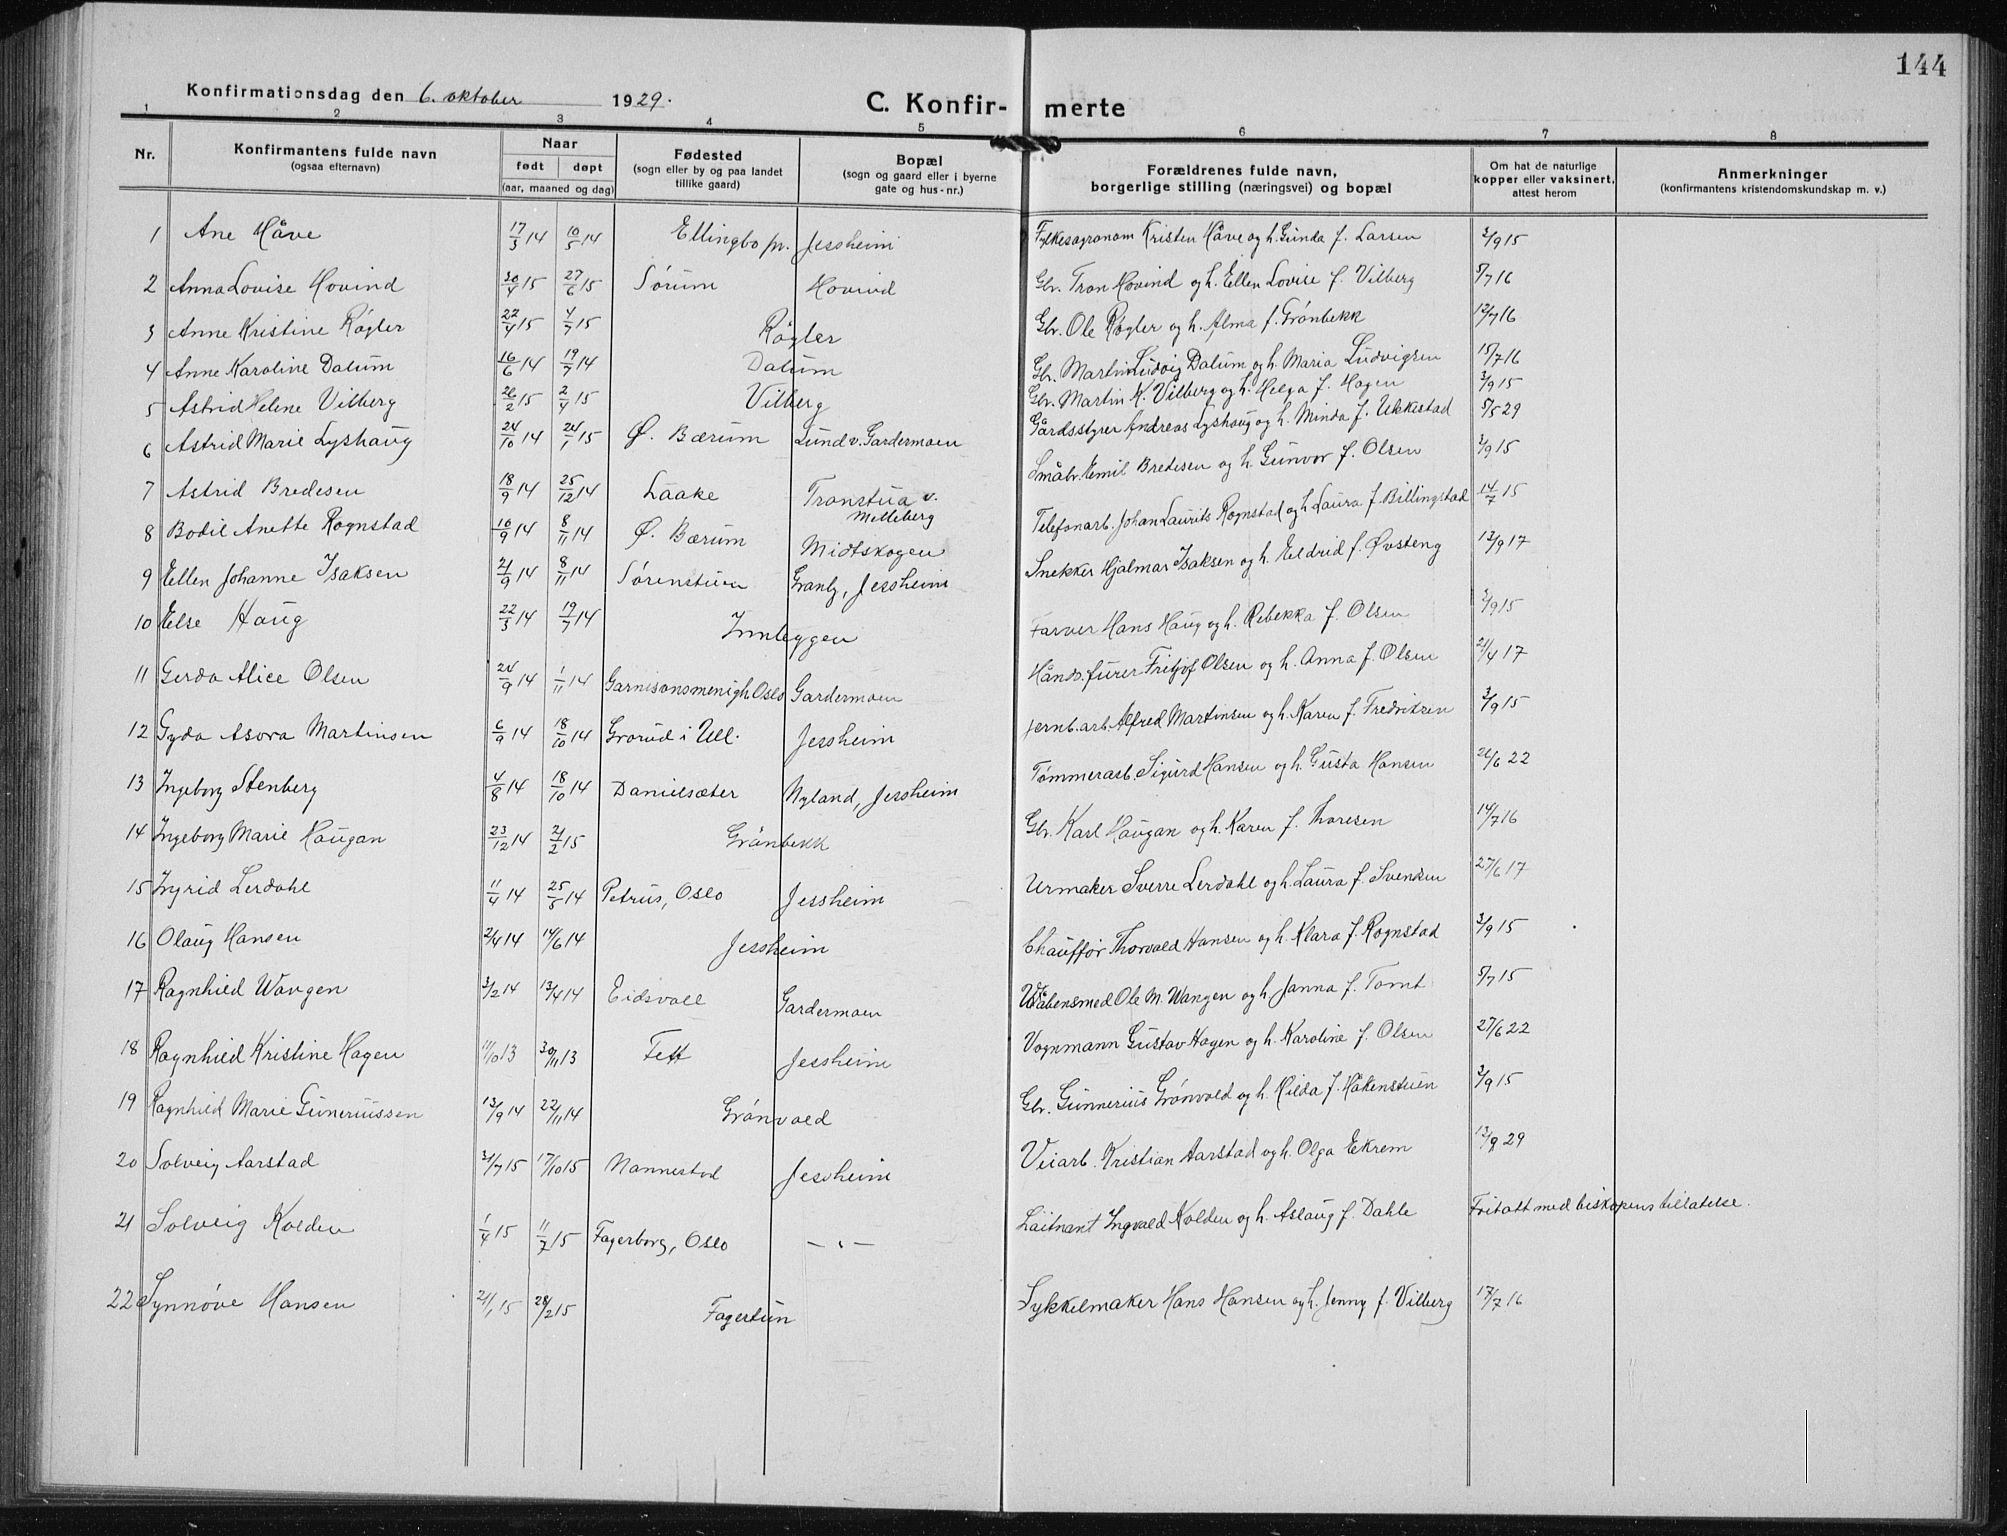 144
Konfirmationsdag den 6. oktober 1929.
C. Konfir- merte
1 2 3 4 5 6 7 8
Nr. Konfirmantens fulde navn (ogsaa efternavn) Naar født døpt (aar, maaned og dag) Fødested (sogn eller by og paa landet tillike gaard) Bopæl (sogn og gaard eller i byerne gate og hus-nr.) Forældrenes fulde navn, borgerlige stilling (næringsvei) og bopæl Om hat de naturlige kopper eller vaksinert, attest herom Anmerkninger (konfirmantens kristendomskundskap m. v.)
1 Ane Håve 17/3 14 10/5 14 Ellingbo pr. Jessheim Fylkesagronom Kristen Håve og h. Gunda f. Larsen 3/9 15
2 Anna Lovise Hovind 30/4 15 27/6 15 Sørum Hovind Gbr. Tron Hovind og h. Ellen Lovise f. Vilberg 5/7 16
3 Anne Kristine Røgler 22/4 15 4/7 15 Røgler Gbr. Ole Røgler og h. Alma f. Grønbekk 12/7 16
4 Anne Karoline Dalum 16/6 14 19/7 14 Dalum Gbr. Martin Ludvig Dalum og h. Maria Ludvigsen 15/7 16
5 Astrid Helene Vilberg 26/2 15 2/4 15 Vilberg Gbr. Martin K. Vilberg og h. Helga f. Hagen 3/9 15
6 Astrid Marie Lyshaug 24/10 14 24/1 15 Ø. Bærum Lund v. Gardermoen Gårdsstyrer Andreas Lyshaug og h. Minda f. Ukkestad 5/5 29
7 Astrid Bredesen 18/9 14 25/12 14 Laake Tronstua v. Melleberg Småbr. Emil Bredesen og h. Gunvor f. Olsen 3/9 15
8 Bodil Anette Rognstad 16/9 14 8/11 14 Ø. Bærum Midtskogen Telefonarb. Johan Laurits Rognstad og h. Laura f. Billingstad 14/7 15
9 Ellen Johanne Isaksen 21/9 14 8/11 14 Sørenstuen Granly, Jessheim Snekker Hjalmar Isaksen og h. Eldrid f. Øvsteng 13/9 17
10 Else Haug 22/3 14 19/7 14 Innleggen Farver Hans Haug og h. Rebekka f. Olsen 3/9 15
11 Gerda Alice Olsen 24/9 14 1/11 14 Garnisonsmenigh. Oslo Gardermoen Håndv.furer Fritjof Olsen og h. Anna f. Olsen 21/4 17
12 Gyda Asora Martinsen 6/9 14 18/10 14 Grorud i Ull. Jessheim Jernb.arb. Alfred Martinsen og h. Karen f. Fredriksen 3/9 15
13 Ingeborg Stenberg 4/8 14 18/10 14 Danielsæter Nyland, Jessheim Tømmerarb. Sigurd Hansen og h. Gusta Hansen 26/6 22
14 Ingeborg Marie Haugan 23/12 14 21/2 15 Grønbekk Gbr. Karl Haugan og h. Karen f. Thoresen 14/7 16
15 Ingrid Lerdahl 11/4 14 25/5 14 Petrus, Oslo Jessheim Urmaker Sverre Lerdahl og h. Laura f. Svendsen 27/6 17
16 Olaug Hansen 2/4 14 14/6 14 Jessheim Chauffør Thorvald Hansen og h. Klara f. Rognstad 3/9 15
17 Ragnhild Wangen 3/2 14 13/4 14 Eidsvoll Gardermoen Våbensmed Ole M. Wangen og h. Janna f. Tomt 5/7 15
18 Ragnhild Kristine Hagen 11/10 13 30/11 13 Fett Jessheim Vognmann Gustav Hagen og h. Karoline f. Olsen 27/6 22
19 Ragnhild Marie Guneriussen 13/9 14 22/11 14 Grønvold Gbr. Gunnerius Grønvold og h. Hilda f. Håkenstuen 3/9 15
20 Solveig Aarstad 31/7 15 17/10 15 Nannestad Jessheim Veiarb. Kristian Aarstad og h. Olga Ekrem 13/9 29
21 Solveig Kolden 1/4 15 11/7 15 Fagerborg, Oslo —„— Løitnant Ingvald Kolden og h. Aslaug f. Dahle Fritatt med biskopens tillatelse.
22 Synnøve Hansen 21/1 15 28/2 15 Fagertun Sykkelmaker Hans Hansen og h. Jenny f. Vilberg 17/7 16